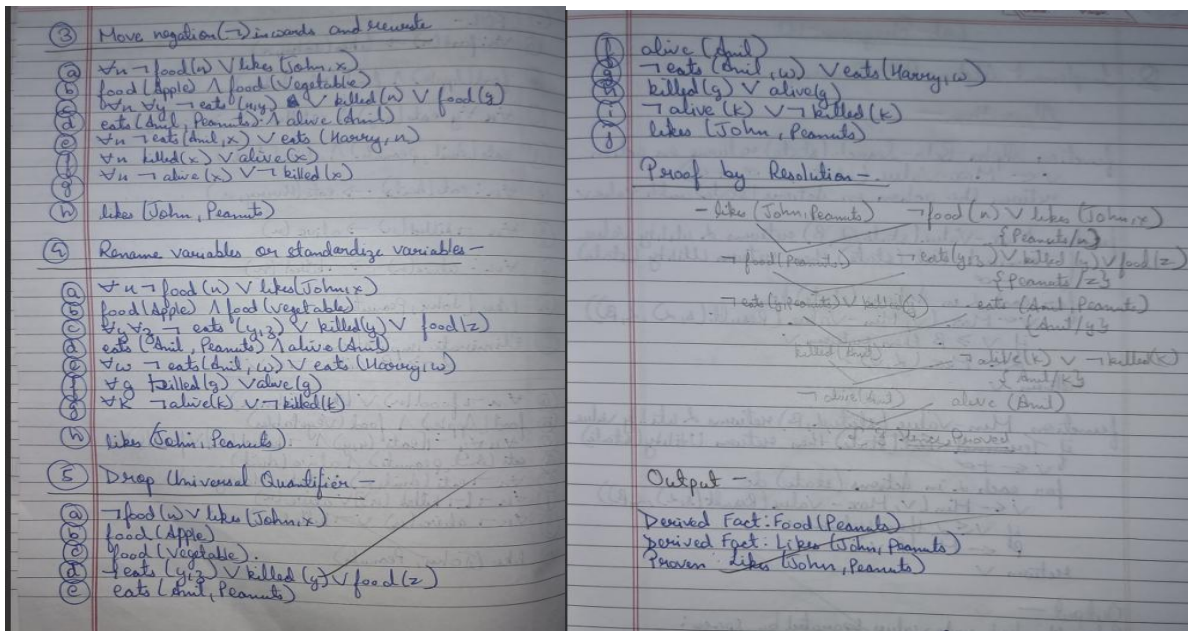 ③ Move negation (¬) inwards and rewrite
ⓐ ∀x ¬food(x) ∨ likes(John, x)
ⓑ food(Apple) ∧ food(Vegetable)
ⓒ ∀x ∀y ¬eats(x,y) ∨ killed(x) ∨ food(y)
ⓓ eats(Anil, Peanuts) ∧ alive(Anil)
ⓔ ∀x ¬eats(Anil, x) ∨ eats(Harry, x)
ⓕ ∀x killed(x) ∨ alive(x)
ⓖ ∀x ¬alive(x) ∨ ¬killed(x)
ⓗ likes (John, Peanuts)
④ Rename variables or standardize variables -
ⓐ ∀x ¬food(x) ∨ likes(John, x)
ⓑ food(Apple) ∧ food(vegetable)
ⓒ ∀y ∀z ¬eats(y,z) ∨ killed(y) ∨ food(z)
ⓓ eats(Anil, Peanuts) ∧ alive(Anil)
ⓔ ∀w ¬eats(Anil, w) ∨ eats(Harry, w)
ⓕ ∀g killed(g) ∨ alive(g)
ⓖ ∀k ¬alive(k) ∨ ¬killed(k)
ⓗ likes (John, Peanuts).
⑤ Drop Universal Quantifier -
ⓐ ¬food(x) ∨ likes(John, x)
ⓑ food(Apple)
ⓒ food(Vegetable).
ⓓ ¬eats(y,z) ∨ killed(y) ∨ food(z)
ⓔ eats(Anil, Peanuts)
ⓕ alive(Anil)
ⓖ ¬eats(Anil, w) ∨ eats(Harry, w)
ⓗ killed(g) ∨ alive(g)
ⓘ ¬alive(k) ∨ ¬killed(k)
ⓙ likes (John, Peanuts)
Proof by Resolution -
¬likes (John, Peanuts) ¬food(x) ∨ likes (John, x)
{Peanuts/x}
¬food(Peanuts) ¬eats(y,z) ∨ killed(y) ∨ food(z)
{Peanuts/z}
¬eats(y, Peanuts) ∨ killed(y) eats(Anil, Peanuts)
{Anil/y}
killed(Anil) ¬alive(k) ∨ ¬killed(k)
{Anil/k}
¬alive(Anil) alive(Anil)
{ } Hence Proved
Output -
Derived Fact: Food(Peanuts)
Derived Fact: Likes (John, Peanuts)
Proven Likes (John, Peanuts)